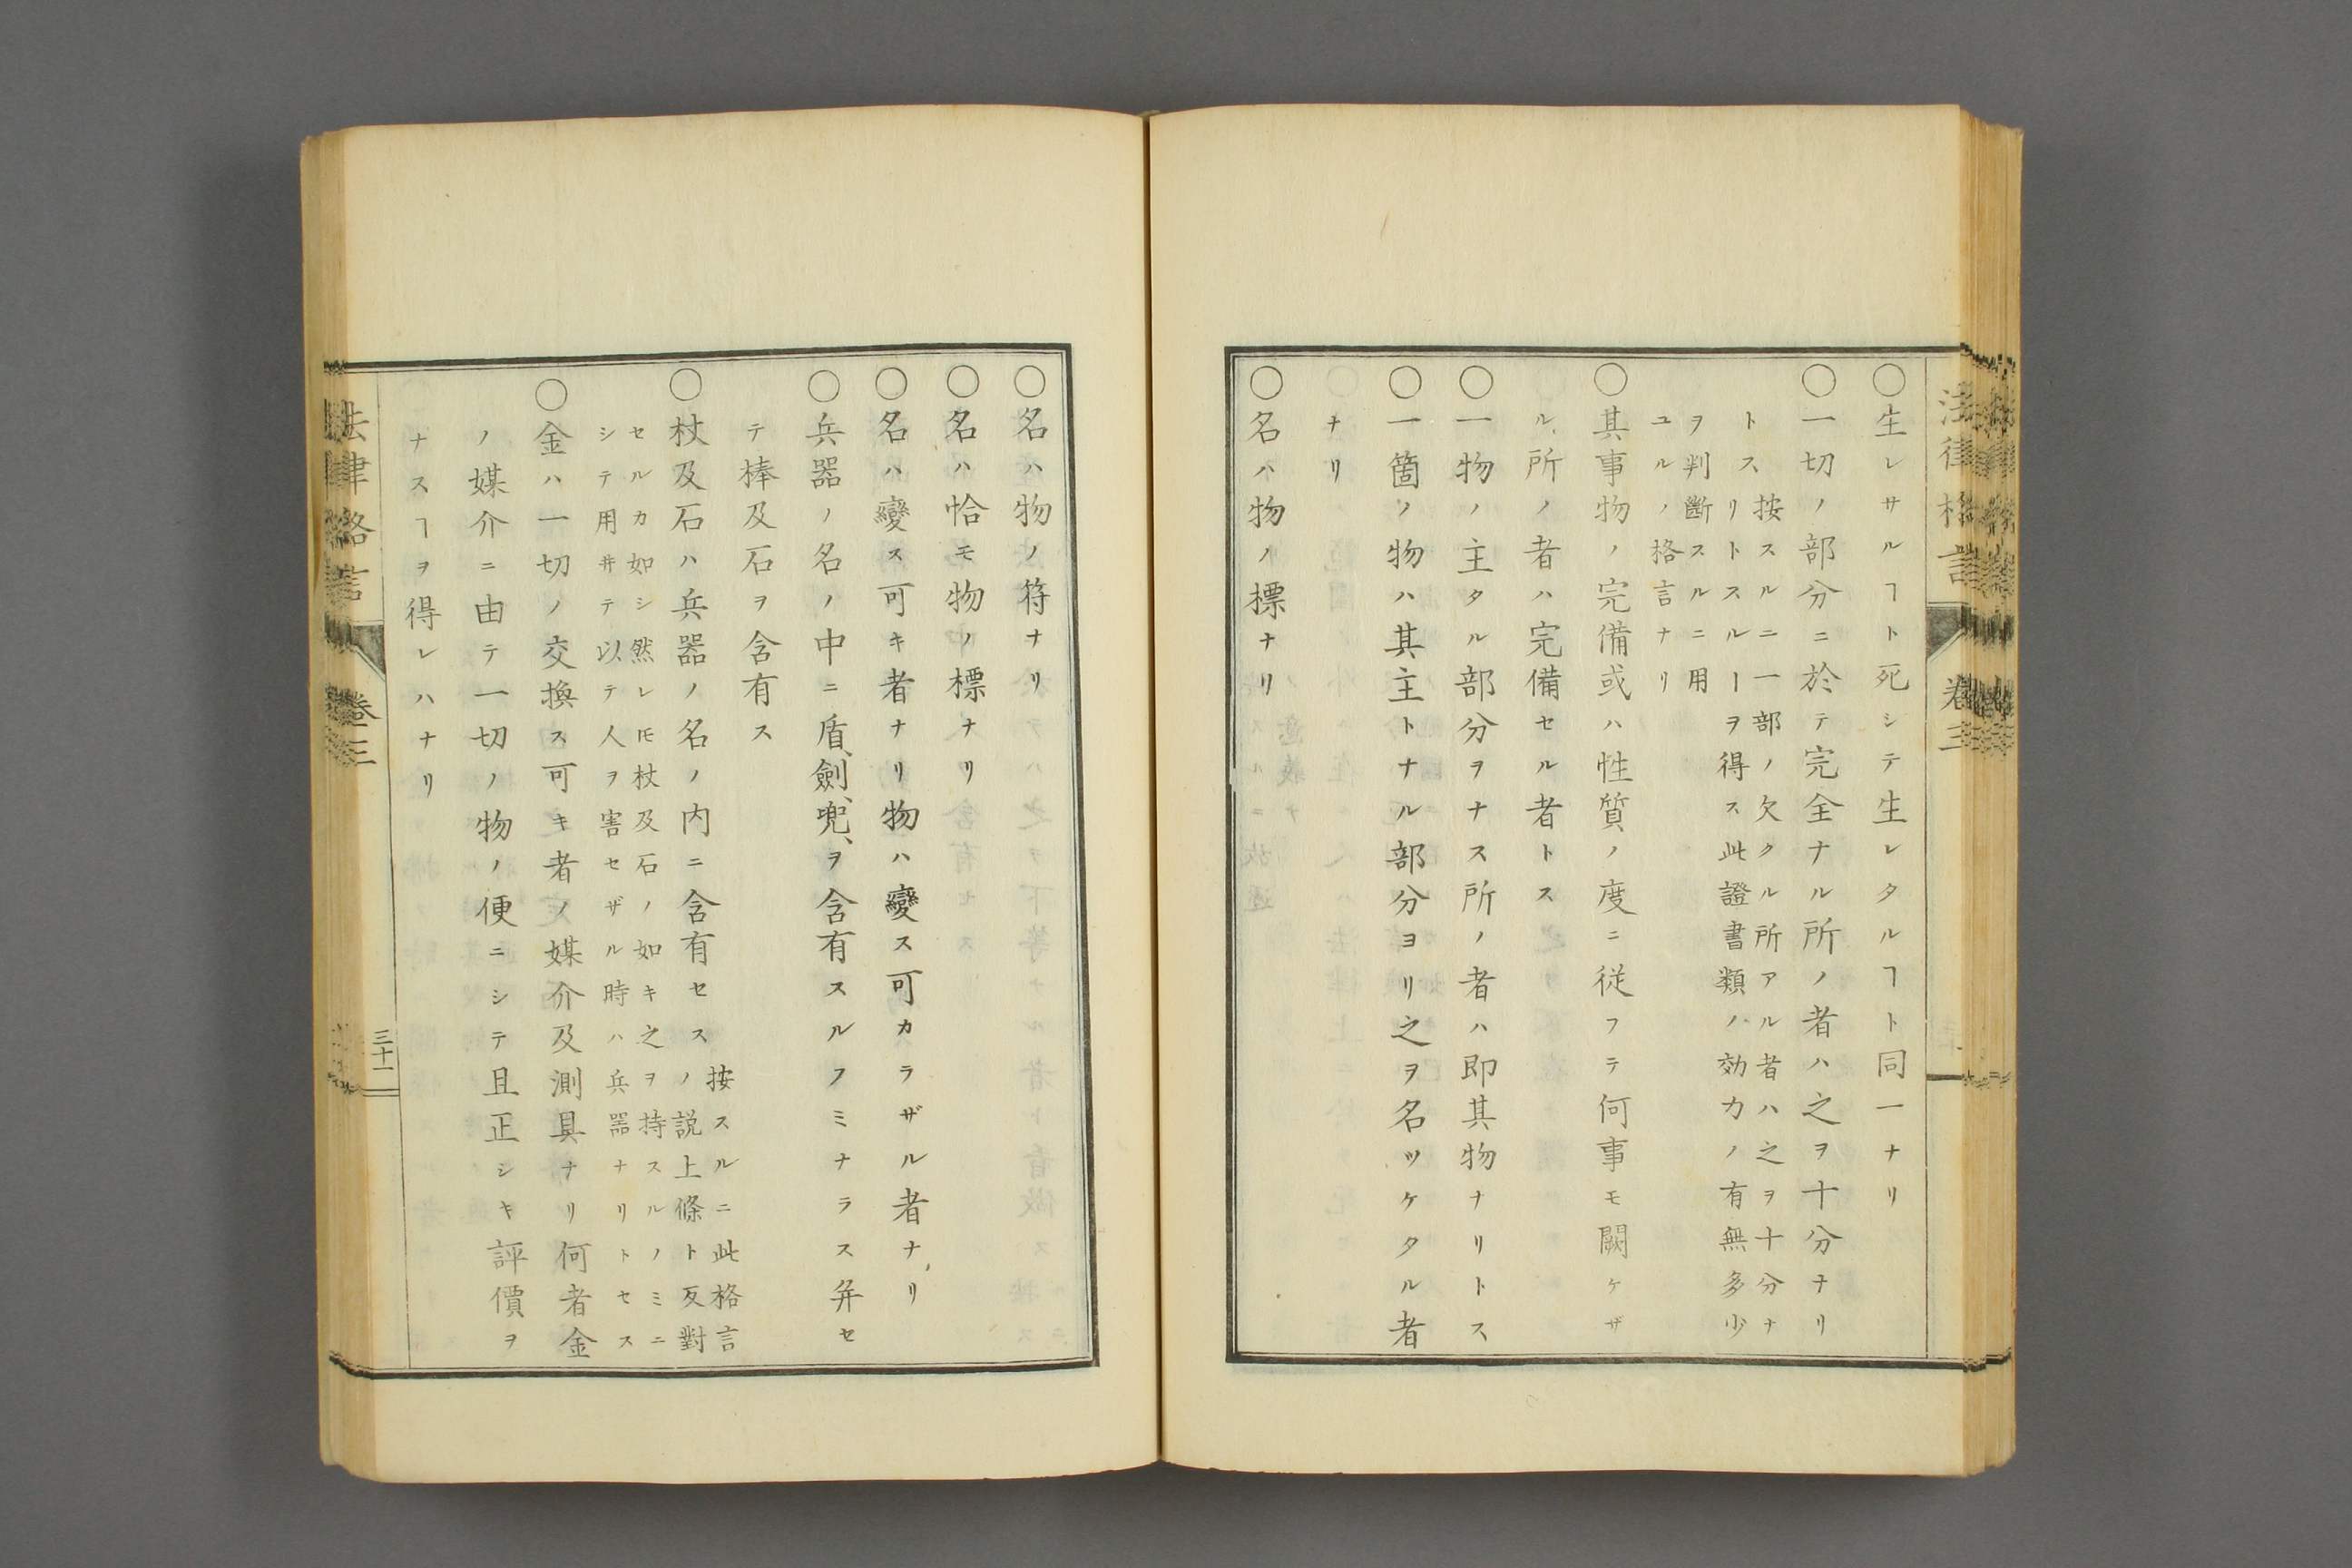 ○生レサルヿト死シテ生レタルヿト同一ナリ
○一切ノ部分ニ於テ完全ナル所ノ者ハ之ヲ十分ナリ
トス
按スルニ一部ノ欠クル所アル者ハ之ヲ十分ナ
リトスルーヲ得ス此證書類ノ効力ノ有無多少
ヲ判斷スルニ用
ユルノ格言ナリ
○其事物ノ完備或ハ性質ノ度ニ従フテ何事モ闕ケザ
ル所ノ者ハ完備セル者トス
○一物ノ主タル部分ヲナス所ノ者ハ即其物ナリトス
○一箇ノ物ハ其主トナル部分ヨリ之ヲ名ツケタル者
ナリ
○名ハ物ノ標ナリ
法律格言
卷三
○名ハ物ノ符ナリ
○名ハ恰モ物ノ標ナリ
○名ハ變ス可キ者ナリ物ハ變ス可カラザル者ナリ
○兵器ノ名ノ中ニ盾、劍、兜、ヲ含有スルノミナラス并セ
テ棒及石ヲ含有ス
○杖及石ハ兵器ノ名ノ内ニ含有セス
按スルニ此格言
ノ説上條ト反對
セルカ如シ然レ𪜈杖及石ノ如キ之ヲ持スルノミニ
シテ用井テ以テ人ヲ害セザル時ハ兵器ナリトセス
○金ハ一切ノ交換ス可キ者ノ媒介及測具ナリ何者金
ノ媒介ニ由テ一切ノ物ノ便ニシテ且正シキ評價ヲ
ナスヿヲ得レハナリ
法律格言
卷三
三十一